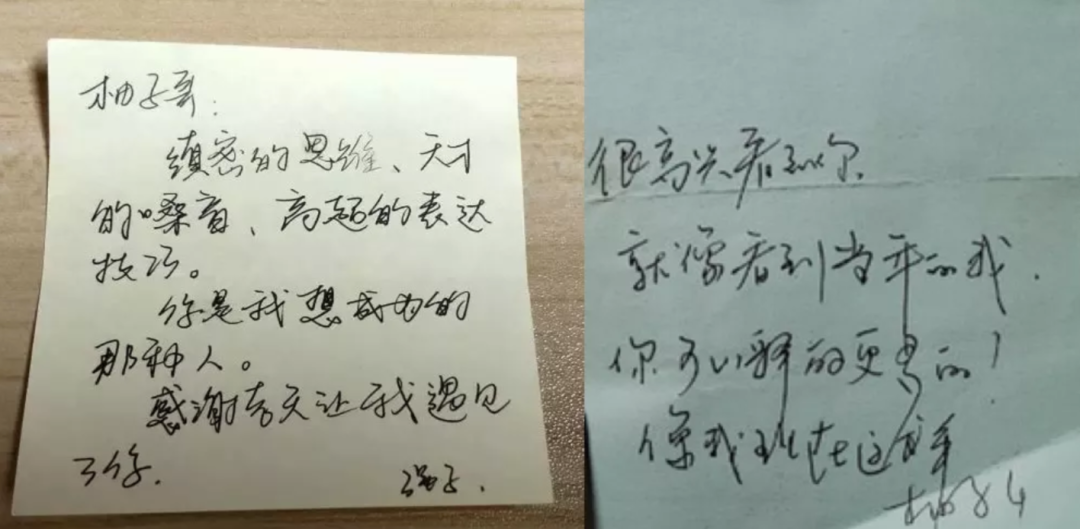 柚子哥：
缜密的思维、天才
的嗓音、高超的表达
技巧。
你是我想成为的
那种人。
感谢春天让我遇见
了你。
强子.
很高兴看到你
就像看到当年的我.
你可以释放更多的！
像我现在这样
柚子